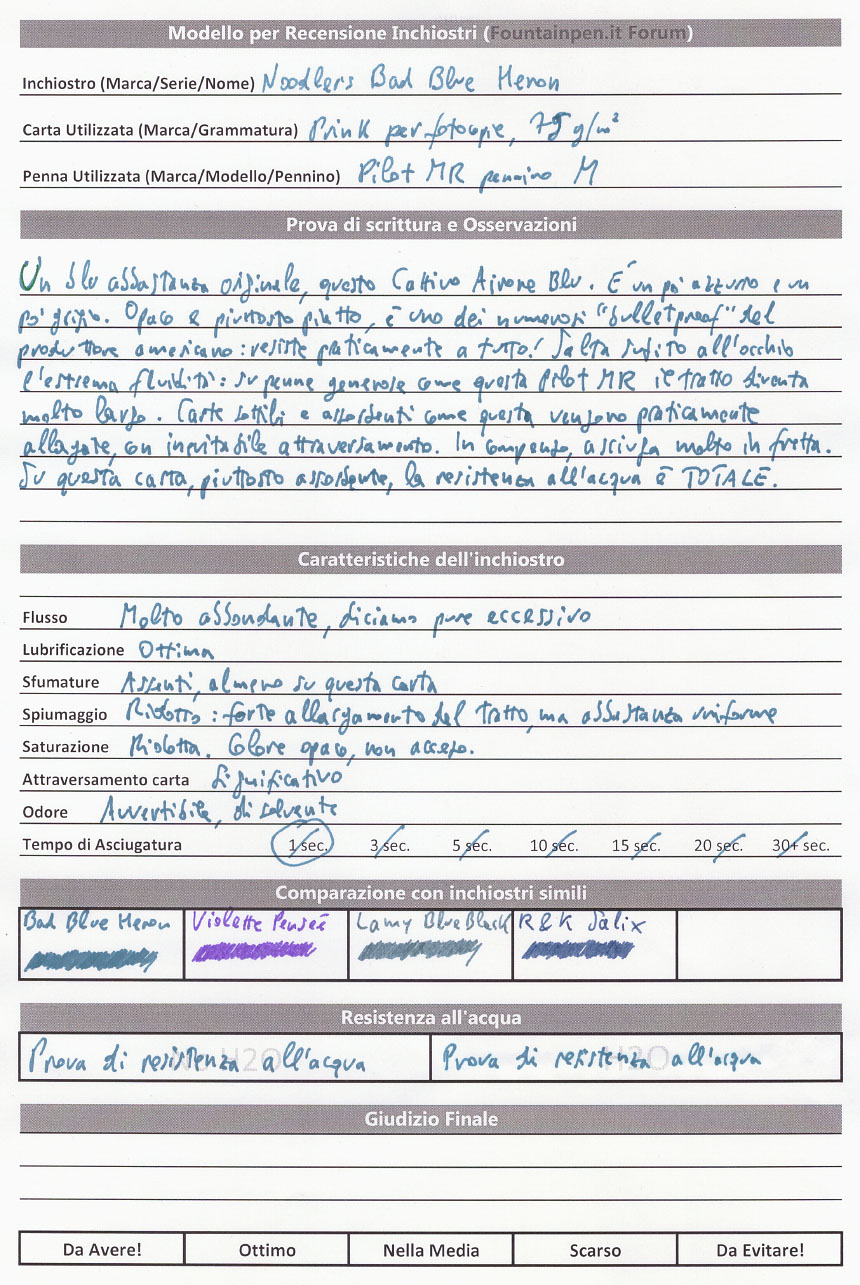 Modello per Recensione Inchiostri (Fountainpen.it Forum)
Inchiostro (Marca/Serie/Nome) Noodler's Bad Blue Heron
Carta Utilizzata (Marca/Grammatura) Prink per fotocopie, 75 g/m²
Penna Utilizzata (Marca/Modello/Pennino) Pilot MR pennino M
Prova di scrittura e Osservazioni
Un blu abbastanza originale, questo Cattivo Airone Blu. È un po' azzurro e un
po' grigio. Opaco e piuttosto piatto, è uno dei numerosi "bulletproof" del
produttore americano: resiste praticamente a tutto! Salta subito all'occhio
l'estrema fluidità: su penne generose come questa Pilot MR il tratto diventa
molto largo. Carte sottili e assorbenti come questa vengono praticamente
allagate, con inevitabile attraversamento. In compenso, asciuga molto in fretta.
Su questa carta, piuttosto assorbente, la resistenza all'acqua è TOTALE.
Caratteristiche dell'inchiostro
Flusso Molto abbondante, diciamo pure eccessivo
Lubrificazione Ottima
Sfumature Assenti, almeno su questa carta
Spiumaggio Ridotto: forte allargamento del tratto, ma abbastanza uniforme
Saturazione Ridotta. Colore opaco, non acceso.
Attraversamento carta Significativo
Odore Avvertibile, di solvente
Tempo di Asciugatura 1 sec. 3 sec. 5 sec. 10 sec. 15 sec. 20 sec. 30+ sec.
Comparazione con inchiostri simili
Bad Blue Heron Violette Penseé Lamy Blue Black R&K Salix
Resistenza all'acqua
Prova di resistenza all'acqua H2O Prova di resistenza all'acqua H2O
Giudizio Finale
Da Avere! Ottimo Nella Media Scarso Da Evitare!